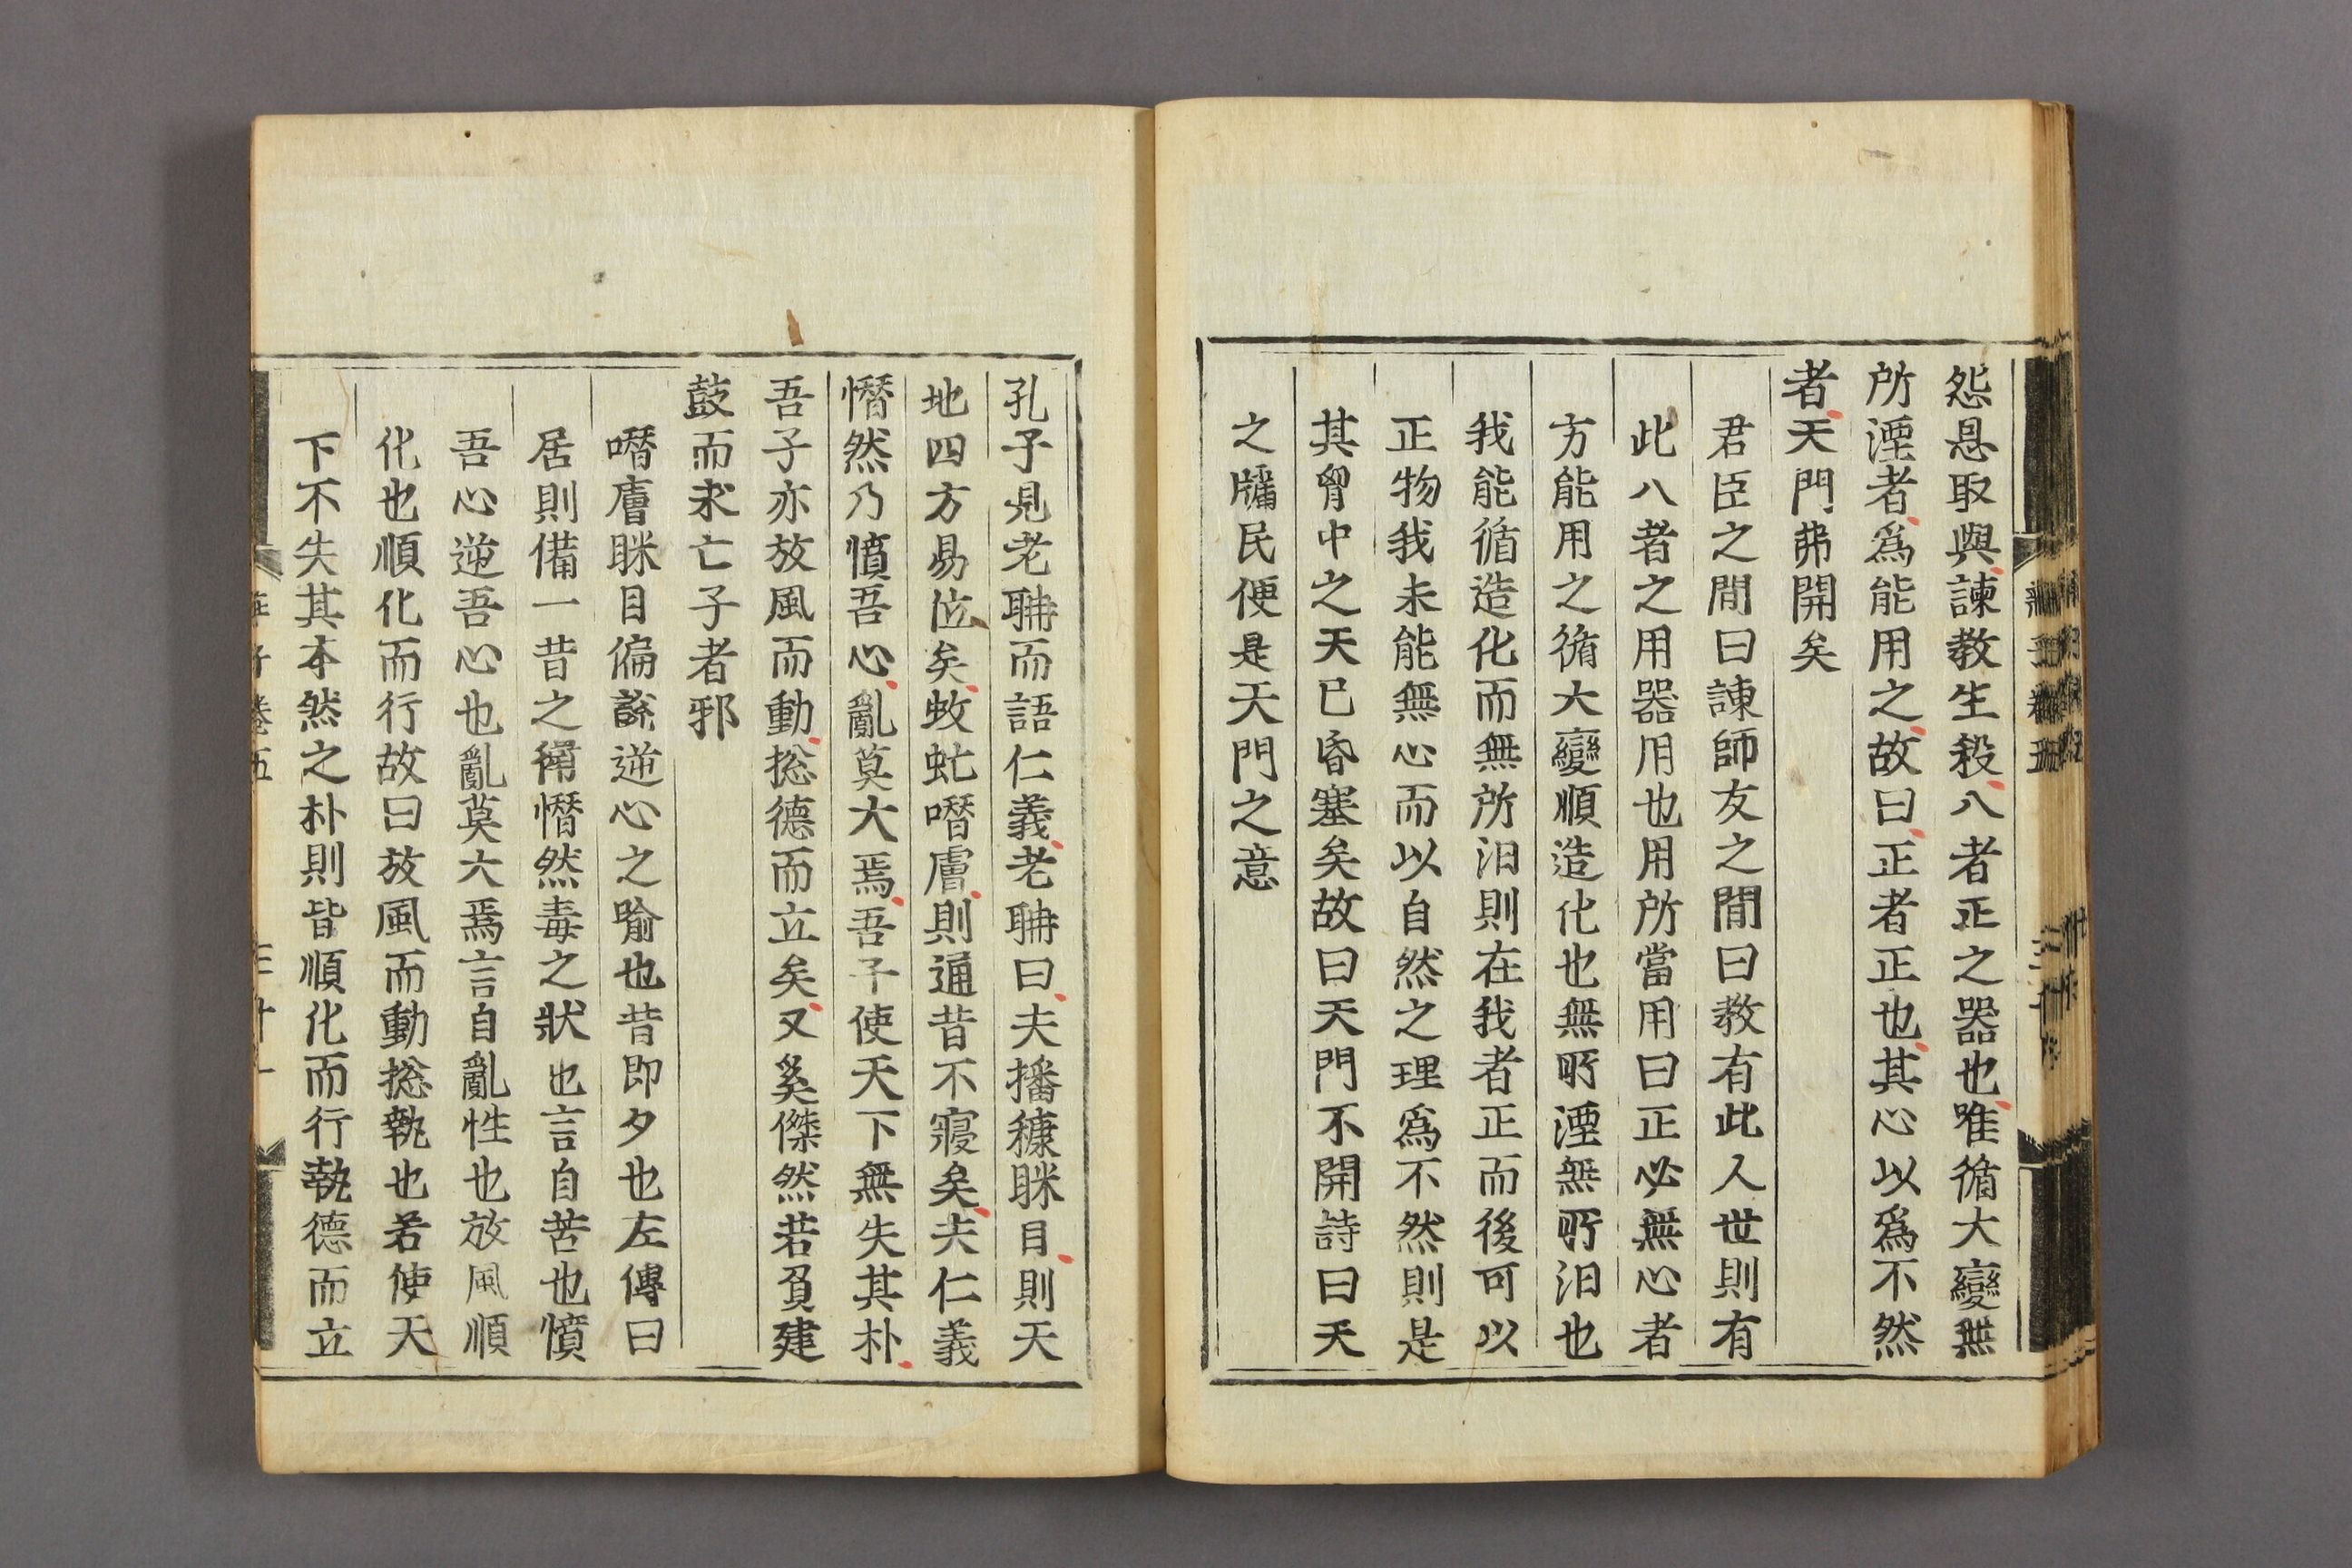 怨恩取與諫教生殺八者正之器也唯循大變無
所湮者為能用之故曰正者正也其心以為不然
者天門弗開矣
君臣之間曰諫師友之間曰教有此人世則有
此八者之用器用也用所當用曰正必無心者
方能用之循大變順造化也無所湮無所汨也
我能循造化而無所汨則在我者正而後可以
正物我未能無心而以自然之理為不然則是
其胷中之天已昏塞矣故曰天門不開詩曰天
之牖民便是天門之意
孔子見老聃而語仁義老聃曰夫播穅眯目則天
地四方易位矣蚊虻噆膚則通昔不寢矣夫仁義
憯然乃憤吾心亂莫大焉吾子使天下無失其朴
吾子亦放風而動揔德而立矣又奚傑然若負建
鼓而求亡子者邪
噆膚眯目偏說逆心之喻也昔即夕也左傳曰
居則備一昔之衞憯然毒之狀也言自苦也憤
吾心逆吾心也亂莫大焉言自亂性也放風順
化也順化而行故曰放風而動揔執也若使天
下不失其本然之朴則皆順化而行執德而立
莊子卷五 三十一